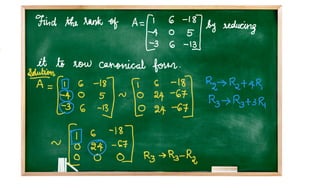 Find the rank of A = [1 6 -18; -4 0 5; -3 6 -13] by reducing
it to row canonical form.
Solution
A = [1 6 -18; -4 0 5; -3 6 -13] ~ [1 6 -18; 0 24 -67; 0 24 -67] R₂→R₂+4R₁
R₃→R₃+3R₁
~ [1 6 -18; 0 24 -67; 0 0 0] R₃→R₃-R₂